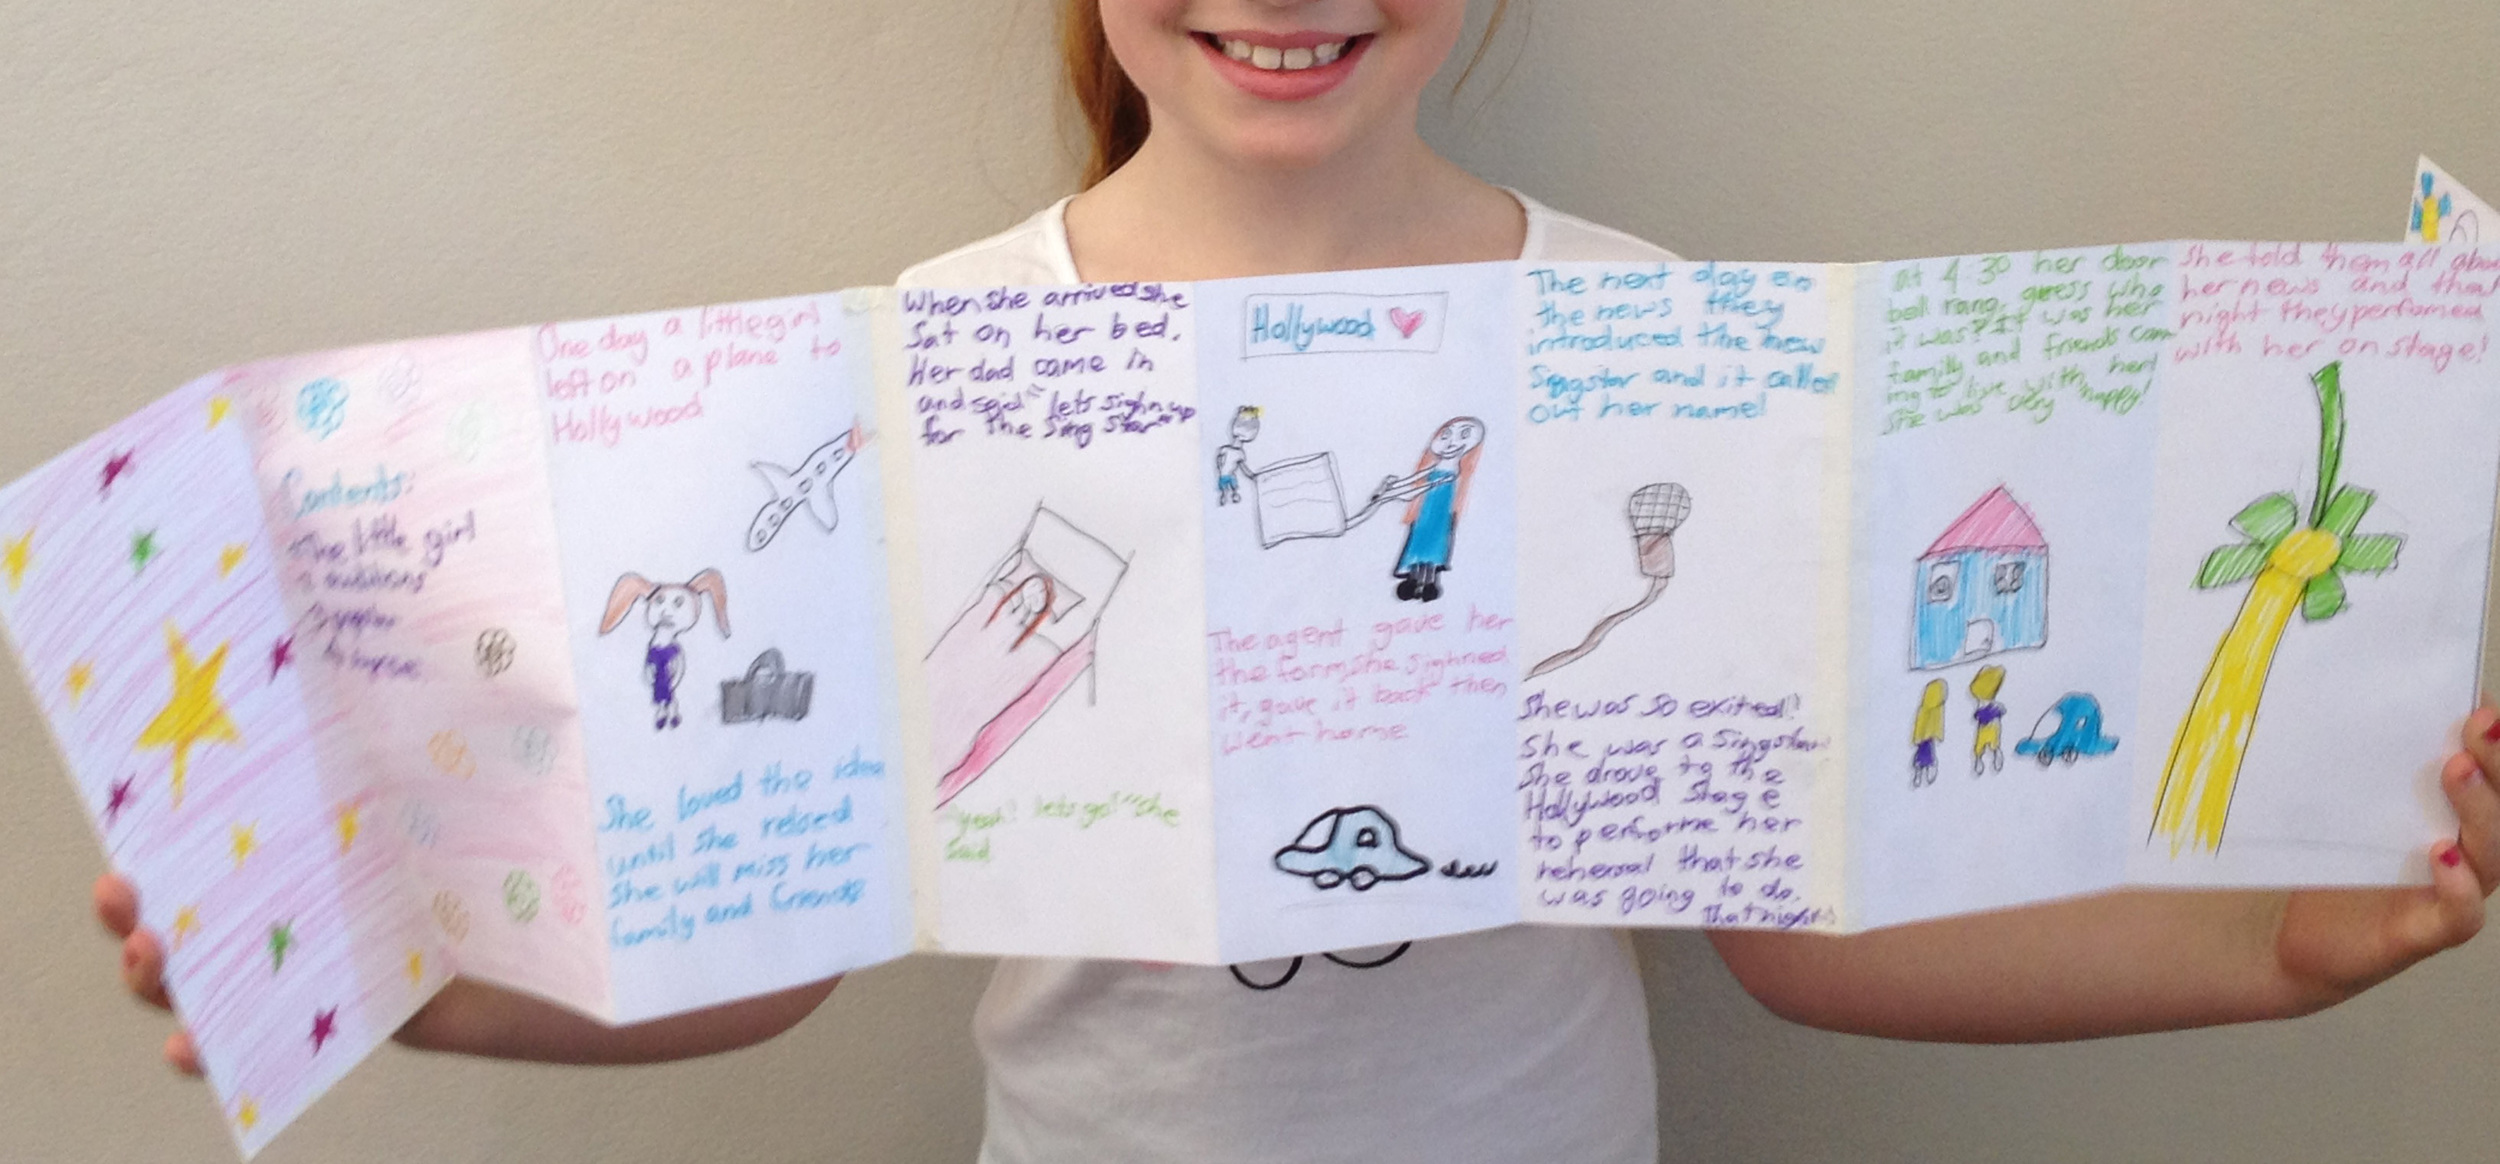 Contents:
The little girl
2 auditions
One day a little girl
left on a plane to
Hollywood
She loved the idea
until she relised
she will miss her
family and friends
When she arrived she
Sat on her bed.
Her dad came in
and said "lets sighn up
for the Sing Star"
"yeah! lets go!" she
said
Hollywood
The agent gave her
the form, she sighned
it, gave it back then
went home
The next day on
the news they
introduced the new
Singstar and it called
out her name!
She was so exited!!
She was a Singstar!
She drove to the
Hollywood Stage
to performe her
rehersal that she
was going to do.
that night!
At 4 30 her door
bell rang, guess who
it was? It was her
family and friends com
ing to live with her!
She was very happy!
She told them all abou
her news and that
night they perfomed
with her on stage!